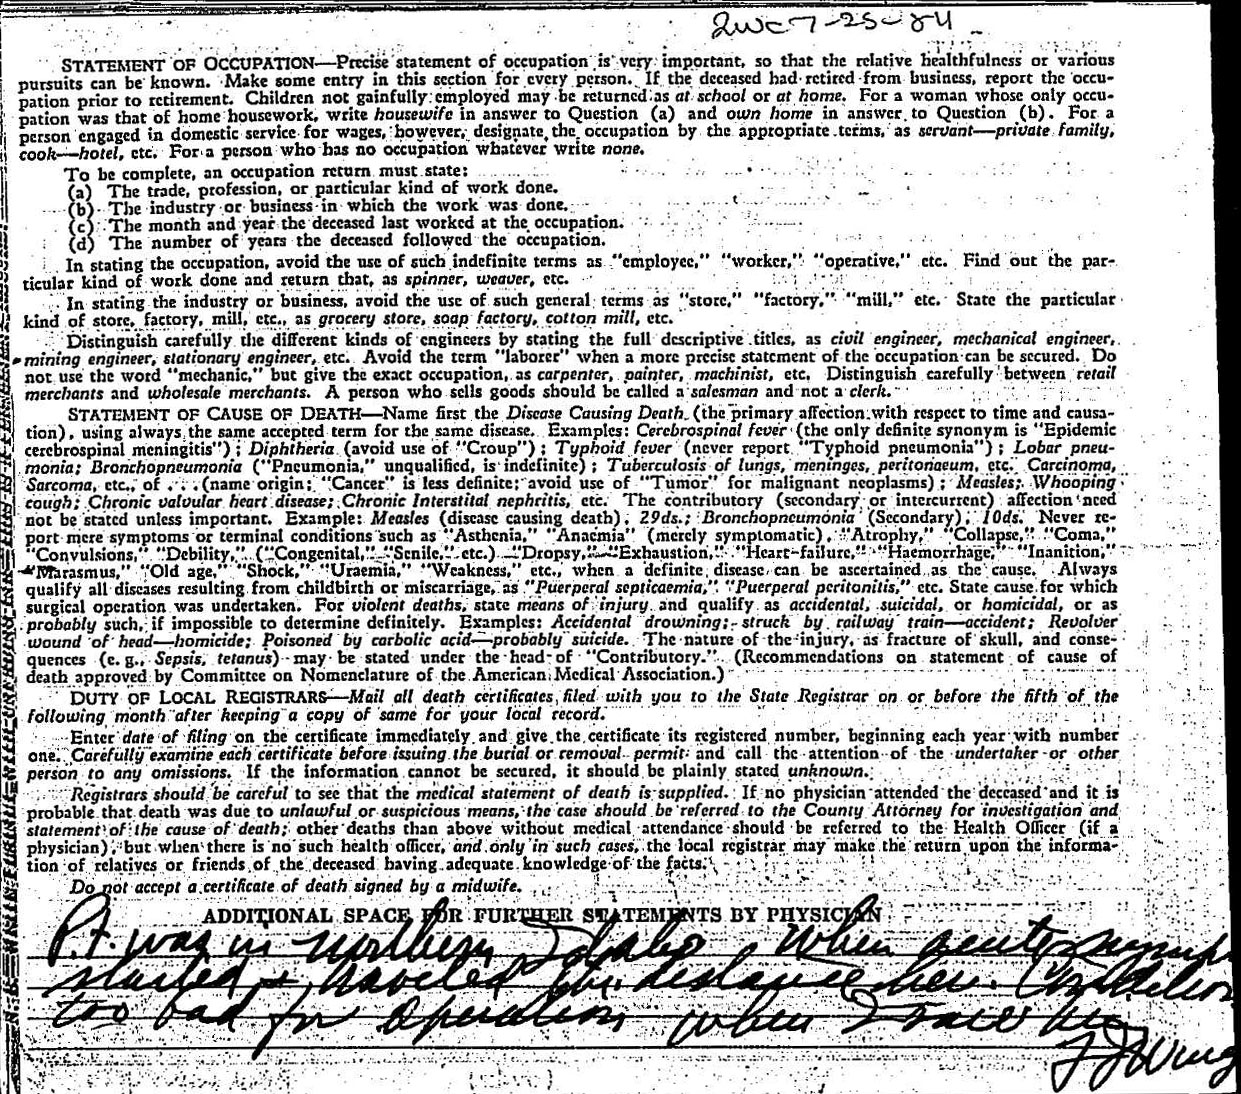 2wc 7-25-84
STATEMENT OF OCCUPATION—Precise statement of occupation is very important, so that the relative healthfulness or various
pursuits can be known. Make some entry in this section for every person. If the deceased had retired from business, report the occu-
pation prior to retirement. Children not gainfully employed may be returned as at school or at home. For a woman whose only occu-
pation was that of home housework, write housewife in answer to Question (a) and own home in answer to Question (b). For a
person engaged in domestic service for wages, however, designate the occupation by the appropriate terms, as servant—private family,
cook—hotel, etc. For a person who has no occupation whatever write none.
To be complete, an occupation return must state:
(a) The trade, profession, or particular kind of work done.
(b) The industry or business in which the work was done.
(c) The month and year the deceased last worked at the occupation.
(d) The number of years the deceased followed the occupation.
In stating the occupation, avoid the use of such indefinite terms as "employee," "worker," "operative," etc. Find out the par-
ticular kind of work done and return that, as spinner, weaver, etc.
In stating the industry or business, avoid the use of such general terms as "store," "factory," "mill," etc. State the particular
kind of store, factory, mill, etc., as grocery store, soap factory, cotton mill, etc.
Distinguish carefully the different kinds of engineers by stating the full descriptive titles, as civil engineer, mechanical engineer,
mining engineer, stationary engineer, etc. Avoid the term "laborer" when a more precise statement of the occupation can be secured. Do
not use the word "mechanic," but give the exact occupation, as carpenter, painter, machinist, etc. Distinguish carefully between retail
merchants and wholesale merchants. A person who sells goods should be called a salesman and not a clerk.
STATEMENT OF CAUSE OF DEATH—Name first the Disease Causing Death (the primary affection with respect to time and causa-
tion), using always the same accepted term for the same disease. Examples: Cerebrospinal fever (the only definite synonym is "Epidemic
cerebrospinal meningitis"); Diphtheria (avoid use of "Croup"); Typhoid fever (never report "Typhoid pneumonia"); Lobar pneu-
monia; Bronchopneumonia ("Pneumonia," unqualified, is indefinite); Tuberculosis of lungs, meninges, peritonaeum, etc. Carcinoma,
Sarcoma, etc., of . . . (name origin; "Cancer" is less definite; avoid use of "Tumor" for malignant neoplasms); Measles; Whooping
cough; Chronic valvular heart disease; Chronic Interstital nephritis, etc. The contributory (secondary or intercurrent) affection need
not be stated unless important. Example: Measles (disease causing death), 29ds.; Bronchopneumonia (Secondary), 10ds. Never re-
port mere symptoms or terminal conditions such as "Asthenia," "Anaemia" (merely symptomatic), "Atrophy," "Collapse," "Coma,"
"Convulsions," "Debility," ("Congenital," "Senile," etc.) "Dropsy," "Exhaustion," "Heart-failure," "Haemorrhage," "Inanition,"
"Marasmus," "Old age," "Shock," "Uraemia," "Weakness," etc., when a definite disease can be ascertained as the cause. Always
qualify all diseases resulting from childbirth or miscarriage, as "Puerperal septicaemia," "Puerperal peritonitis," etc. State cause for which
surgical operation was undertaken. For violent deaths, state means of injury and qualify as accidental, suicidal, or homicidal, or as
probably such, if impossible to determine definitely. Examples: Accidental drowning; struck by railway train—accident; Revolver
wound of head—homicide; Poisoned by carbolic acid—probably suicide. The nature of the injury, as fracture of skull, and conse-
quences (e. g., Sepsis, tetanus) may be stated under the head of "Contributory." (Recommendations on statement of cause of
death approved by Committee on Nomenclature of the American Medical Association.)
DUTY OF LOCAL REGISTRARS—Mail all death certificates filed with you to the State Registrar on or before the fifth of the
following month after keeping a copy of same for your local record.
Enter date of filing on the certificate immediately and give the certificate its registered number, beginning each year with number
one. Carefully examine each certificate before issuing the burial or removal permit and call the attention of the undertaker or other
person to any omissions. If the information cannot be secured, it should be plainly stated unknown.
Registrars should be careful to see that the medical statement of death is supplied. If no physician attended the deceased and it is
probable that death was due to unlawful or suspicious means, the case should be referred to the County Attorney for investigation and
statement of the cause of death; other deaths than above without medical attendance should be referred to the Health Officer (if a
physician), but when there is no such health officer, and only in such cases, the local registrar may make the return upon the informa-
tion of relatives or friends of the deceased having adequate knowledge of the facts.
Do not accept a certificate of death signed by a midwife.
ADDITIONAL SPACE FOR FURTHER STATEMENTS BY PHYSICIAN
Pt. was in northern Idaho when acute symp
started & traveled the distance here. Condition
too bad for operation when I saw